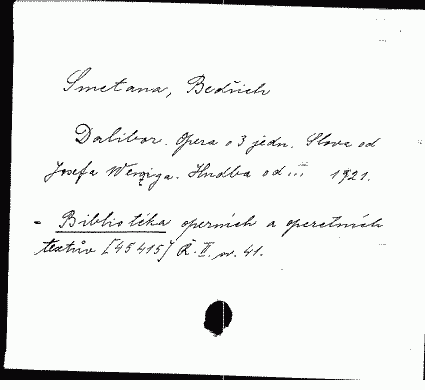 Smetana, Bedřich
Dalibor. Opera o 3 jedn. Slova od
Josefa Wenziga. Hudba od ... 1921.
- Bibliotéka operních a operetních
textův [45415] Ř. II. sv. 41.